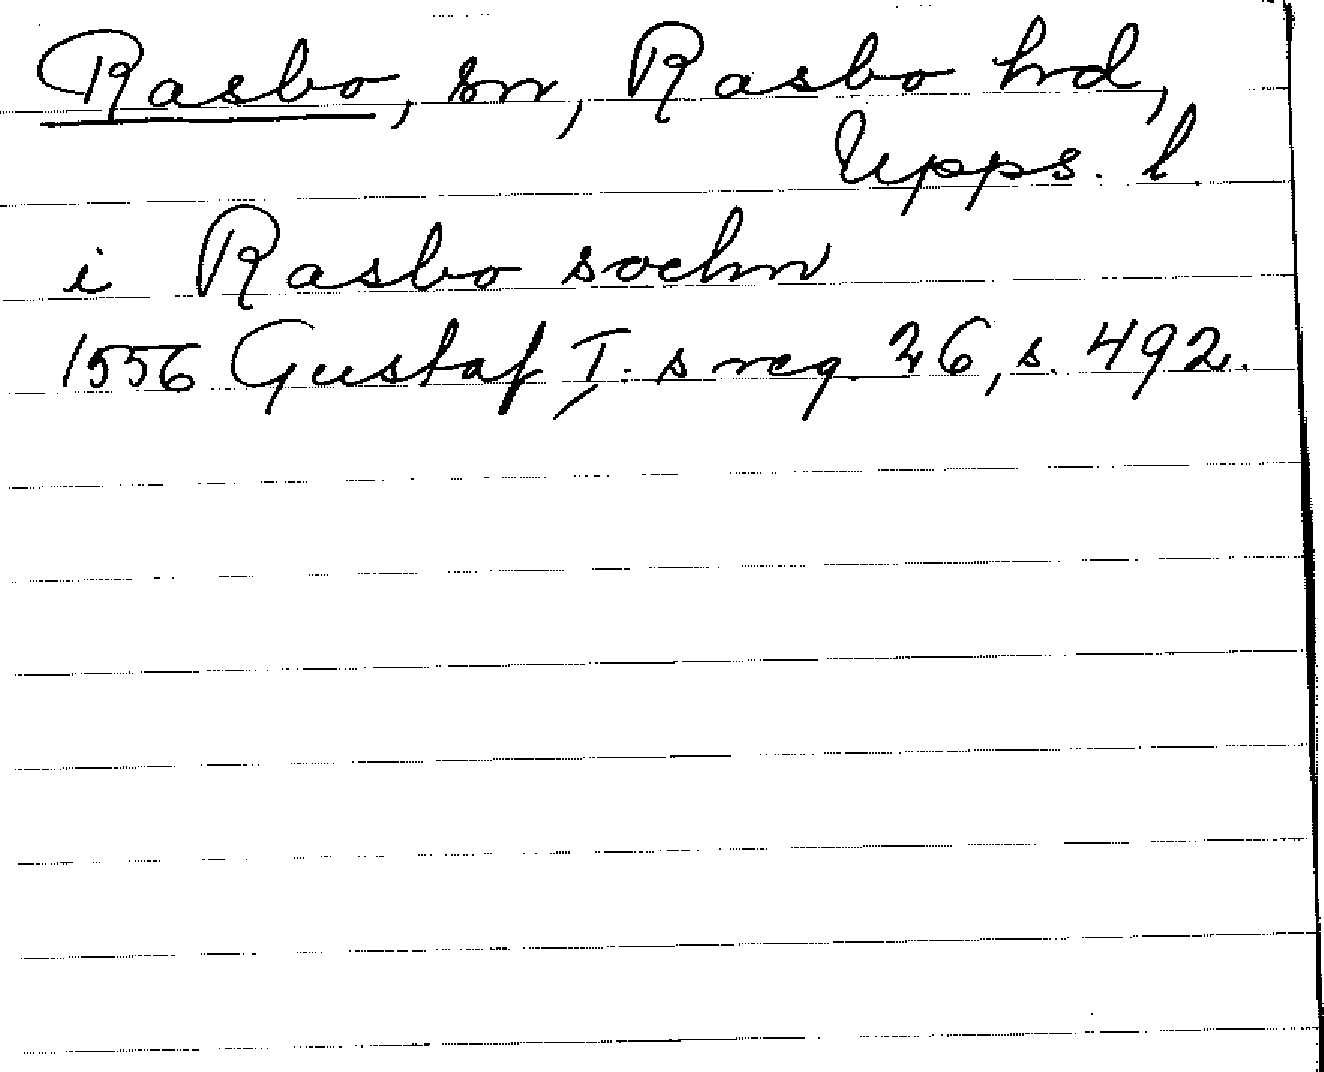 Rasbo, sn, Rasbo hd,
Upps. l.
i Rasbo sochn
1556 Gustaf I. s reg. 26, s. 492.